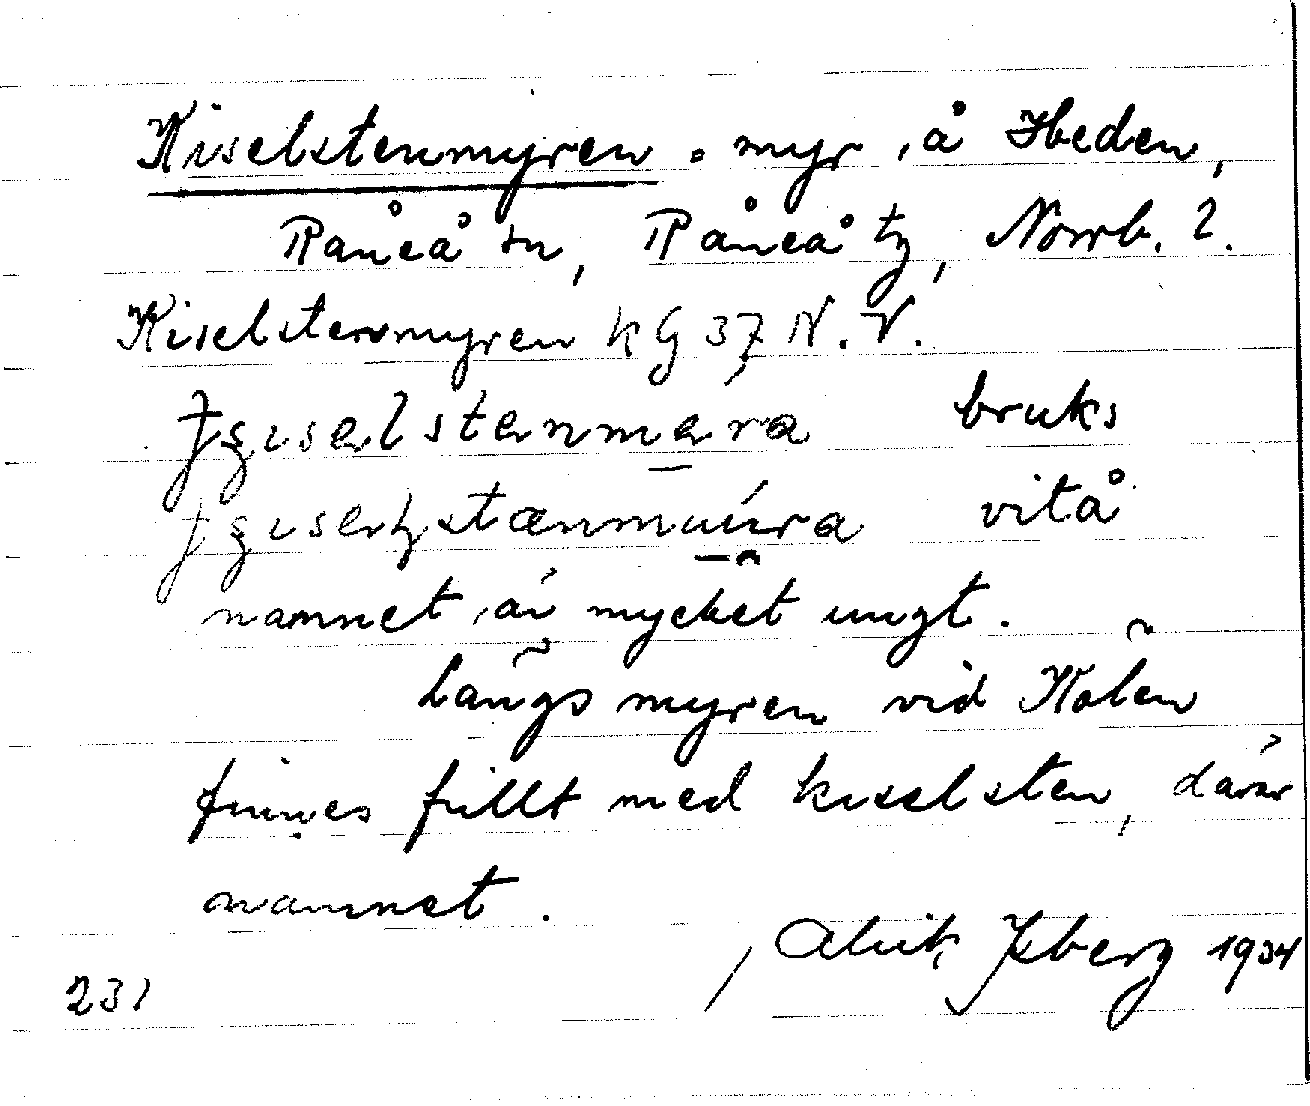 Kiselstenmyren . myr , å Heden,
Råneå sn, Råneå tg, Norrb. l.
Kiselstenmyren KG 37 N.V.
bruks
vitå
namnet är mycket ungt.
Längs myren vid Kölen
finnes fullt med kiselsten, därav
namnet.
Alrik Isberg 1934
231